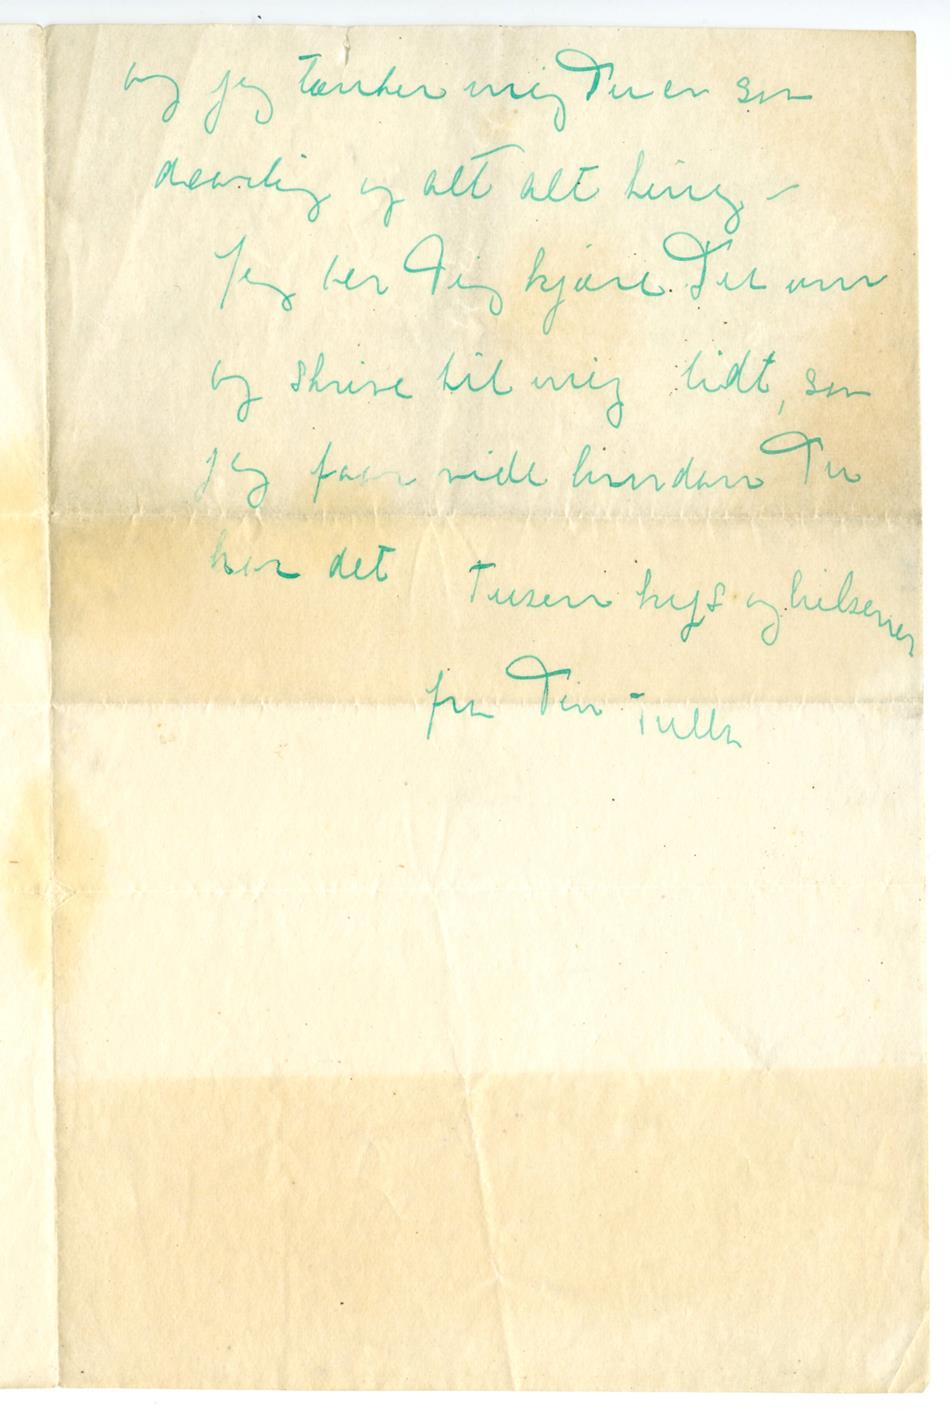 og jeg tænker mig Du er saa
daarlig og alt alt
Jeg ber Dig kjære Du om
og skrive til mig lidt, saa
jeg faar vide hvordan Du
har det Tusen kys og hilsener
fra Din Tulla